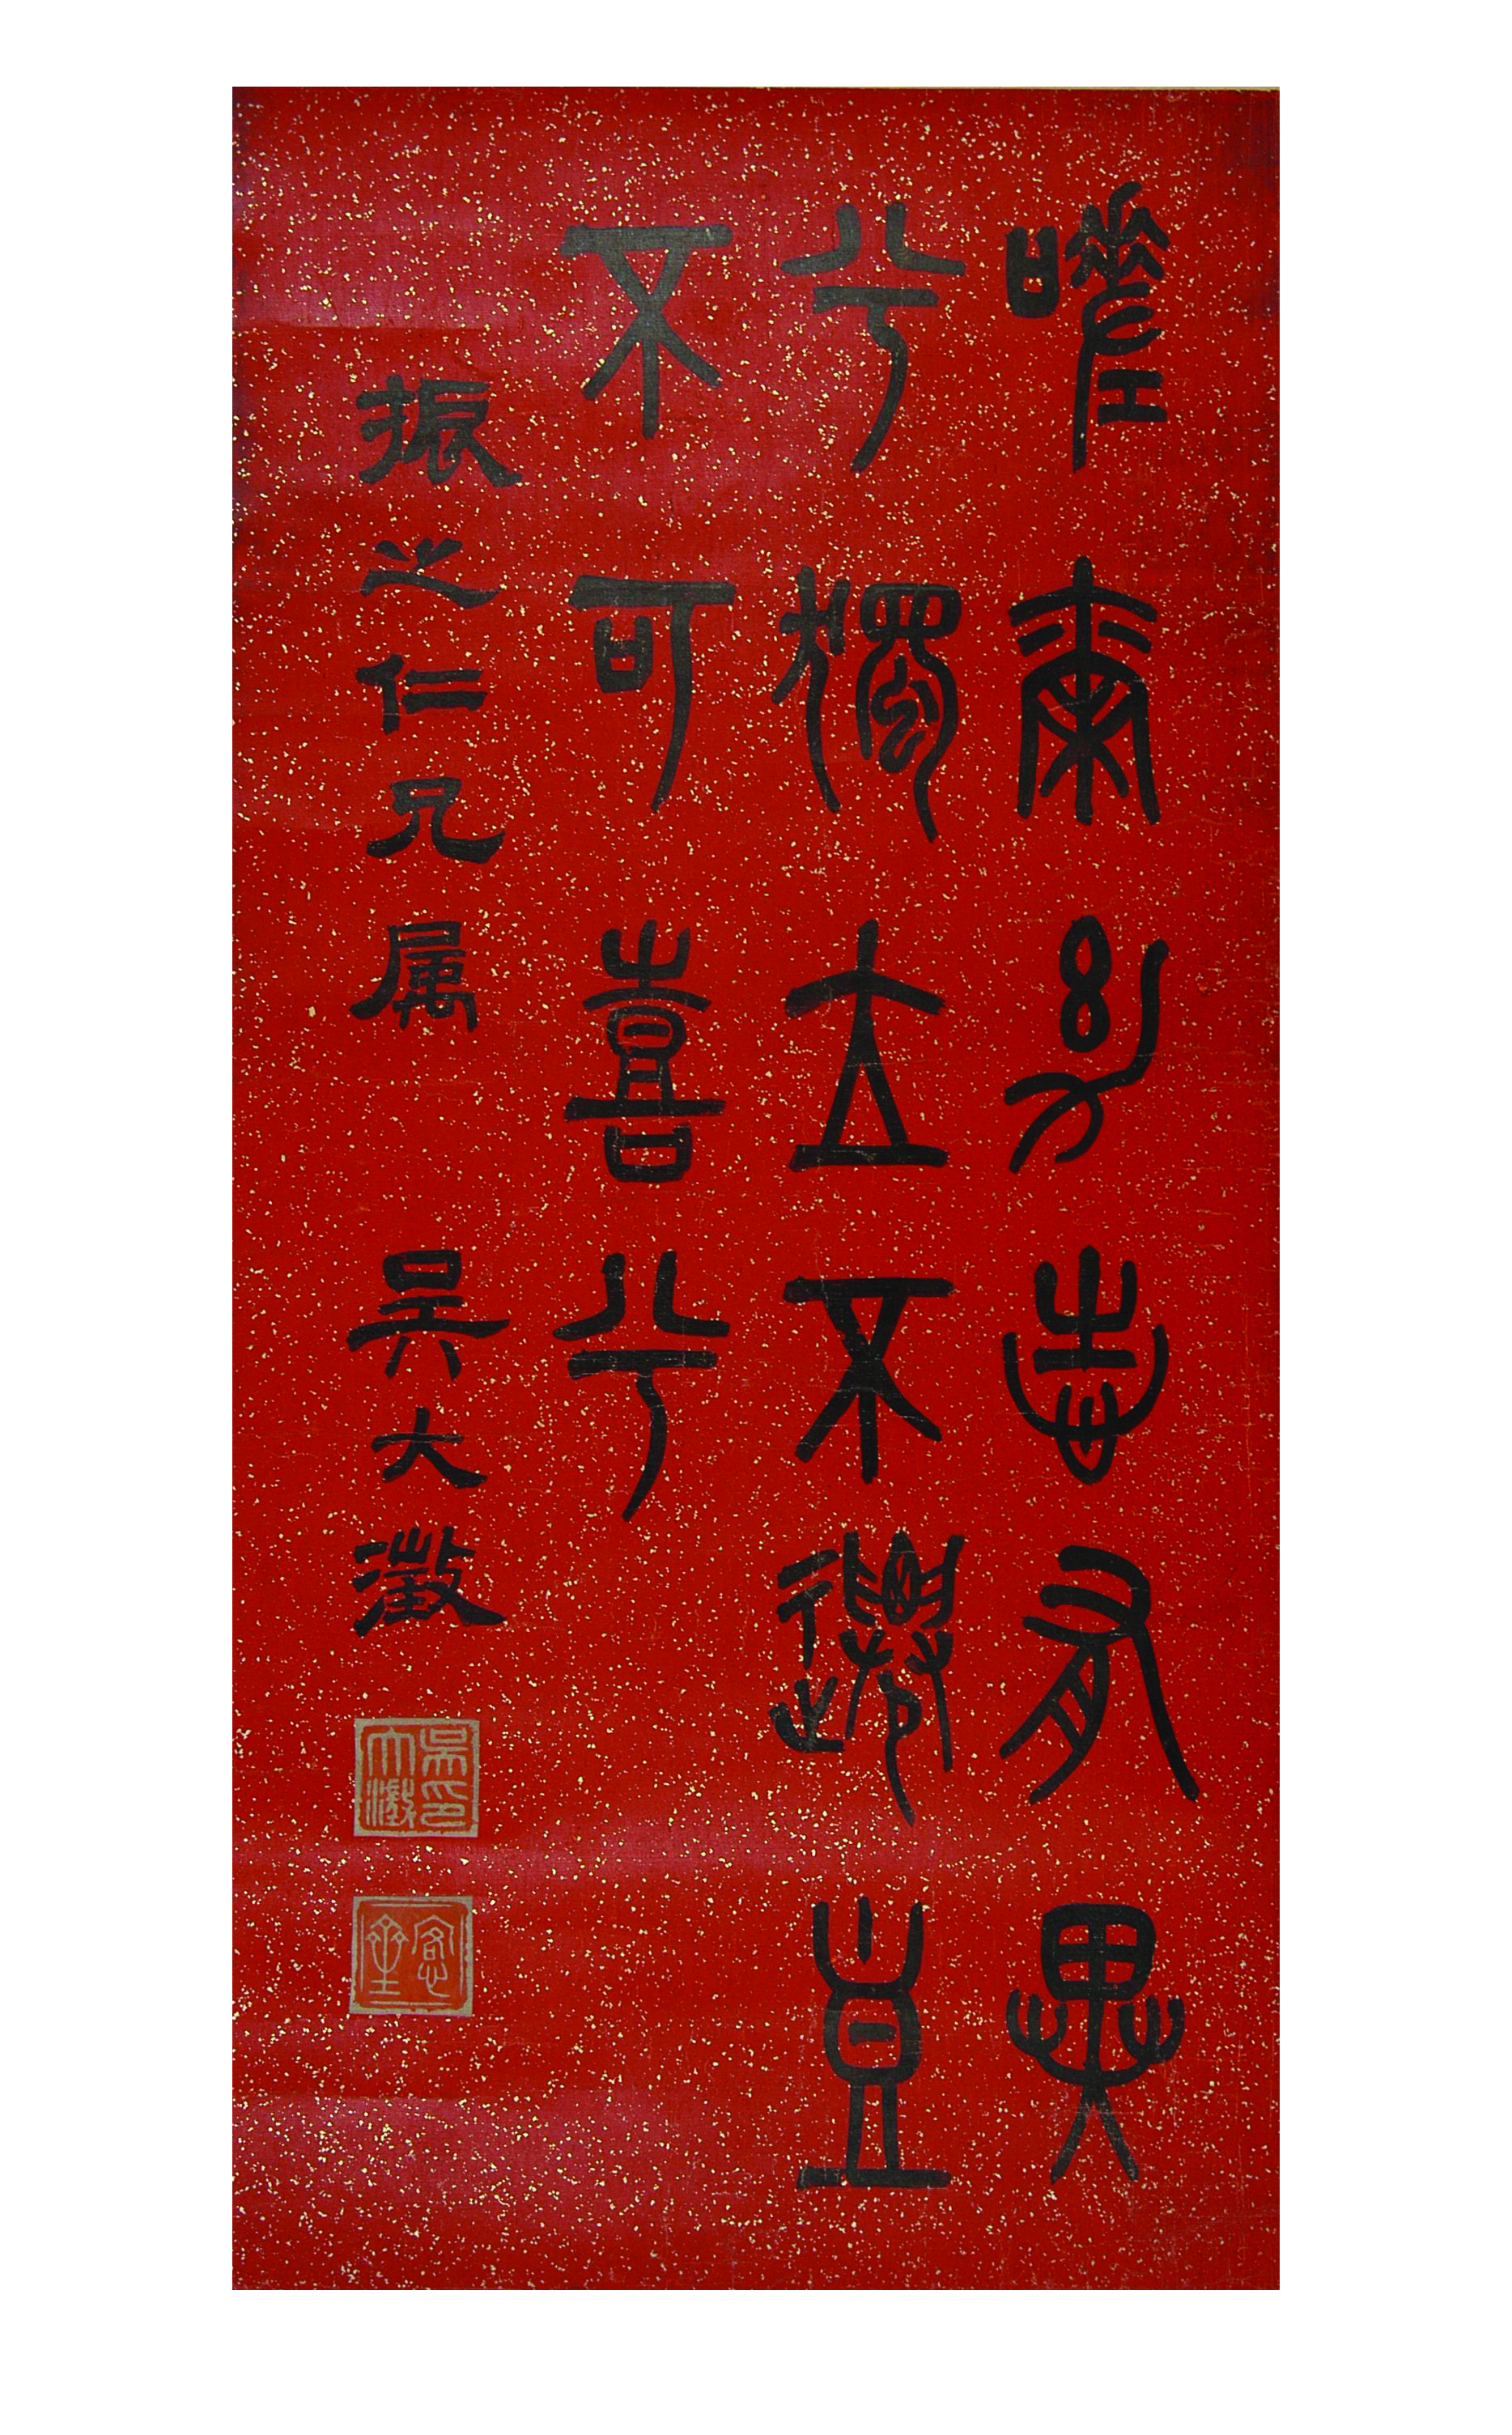 嗟爾幼志有異
兮獨立不遷豈
不可喜兮
振之仁兄属 吳大澂
吳大澂印
愙齋